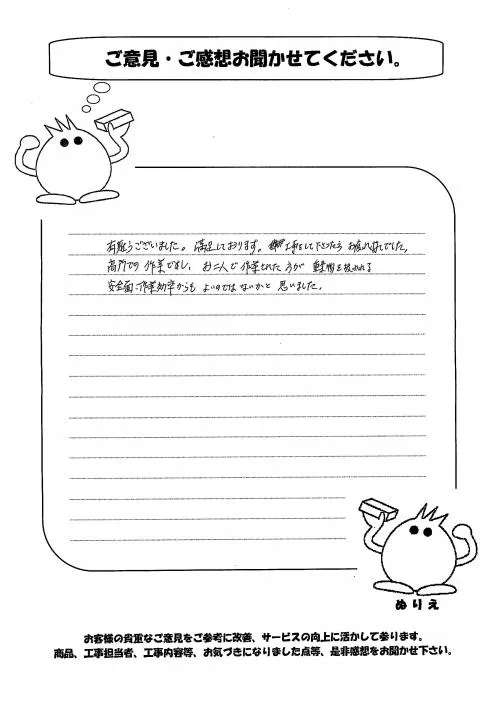 ご意見・ご感想お聞かせてください。
有難うございました。満足しております。工事をして下さった方 お疲れ様でした。
高所での作業ですし、お二人で作業された方が 重量物を扱われる
安全面、作業効率からも よいのではないかと 思いました。
ぬりえ
お客様の貴重なご意見をご参考に改善、サービスの向上に活かして参ります。
商品、工事担当者、工事内容等、お気づきになりました点等、是非感想をお聞かせ下さい。